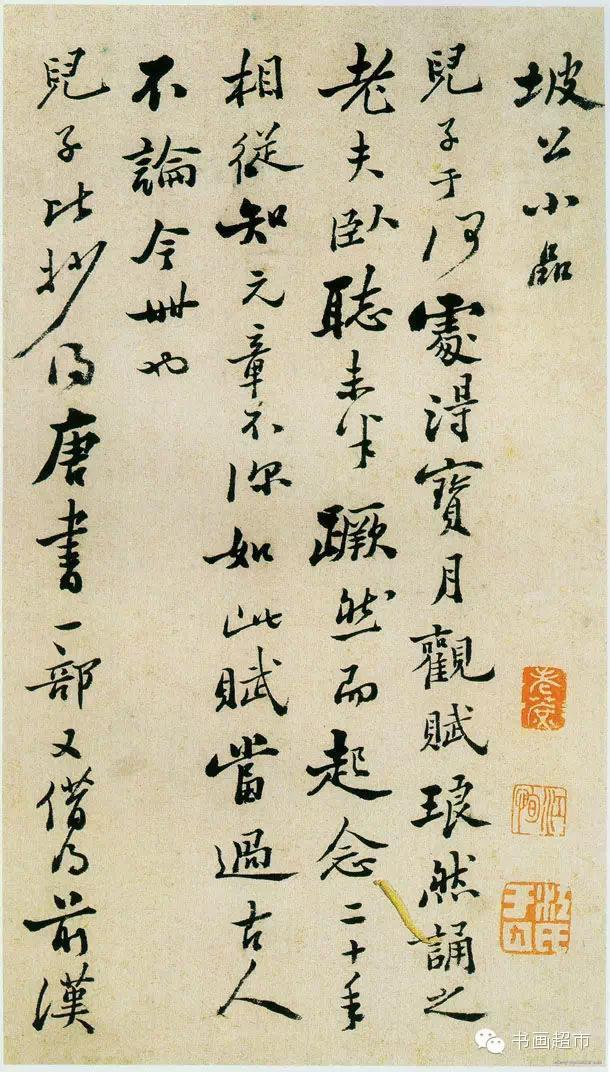 坡公小品
兒子于何處得寶月觀賦琅然誦之
老夫臥聽未半蹶然而起念二十年
相從知元章不深如此賦當過古人
不論今世也
兒子比抄得唐書一部又借得前漢
书画超市